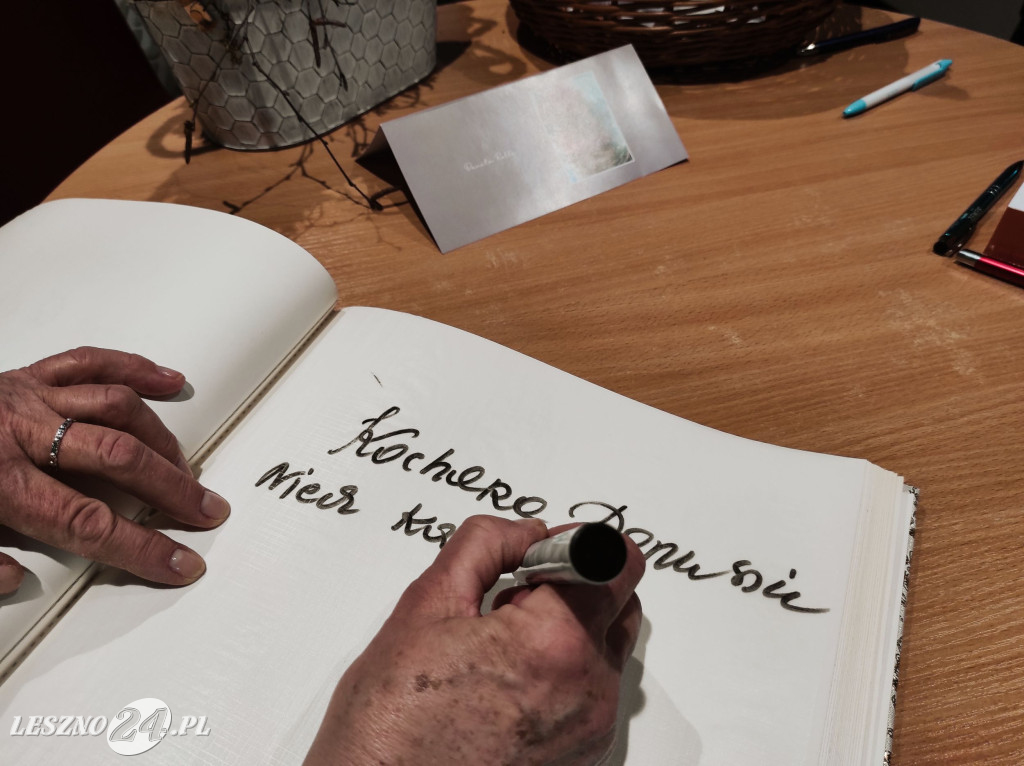 Kochana Danusiu
Niech ka
LESZNO24.PL